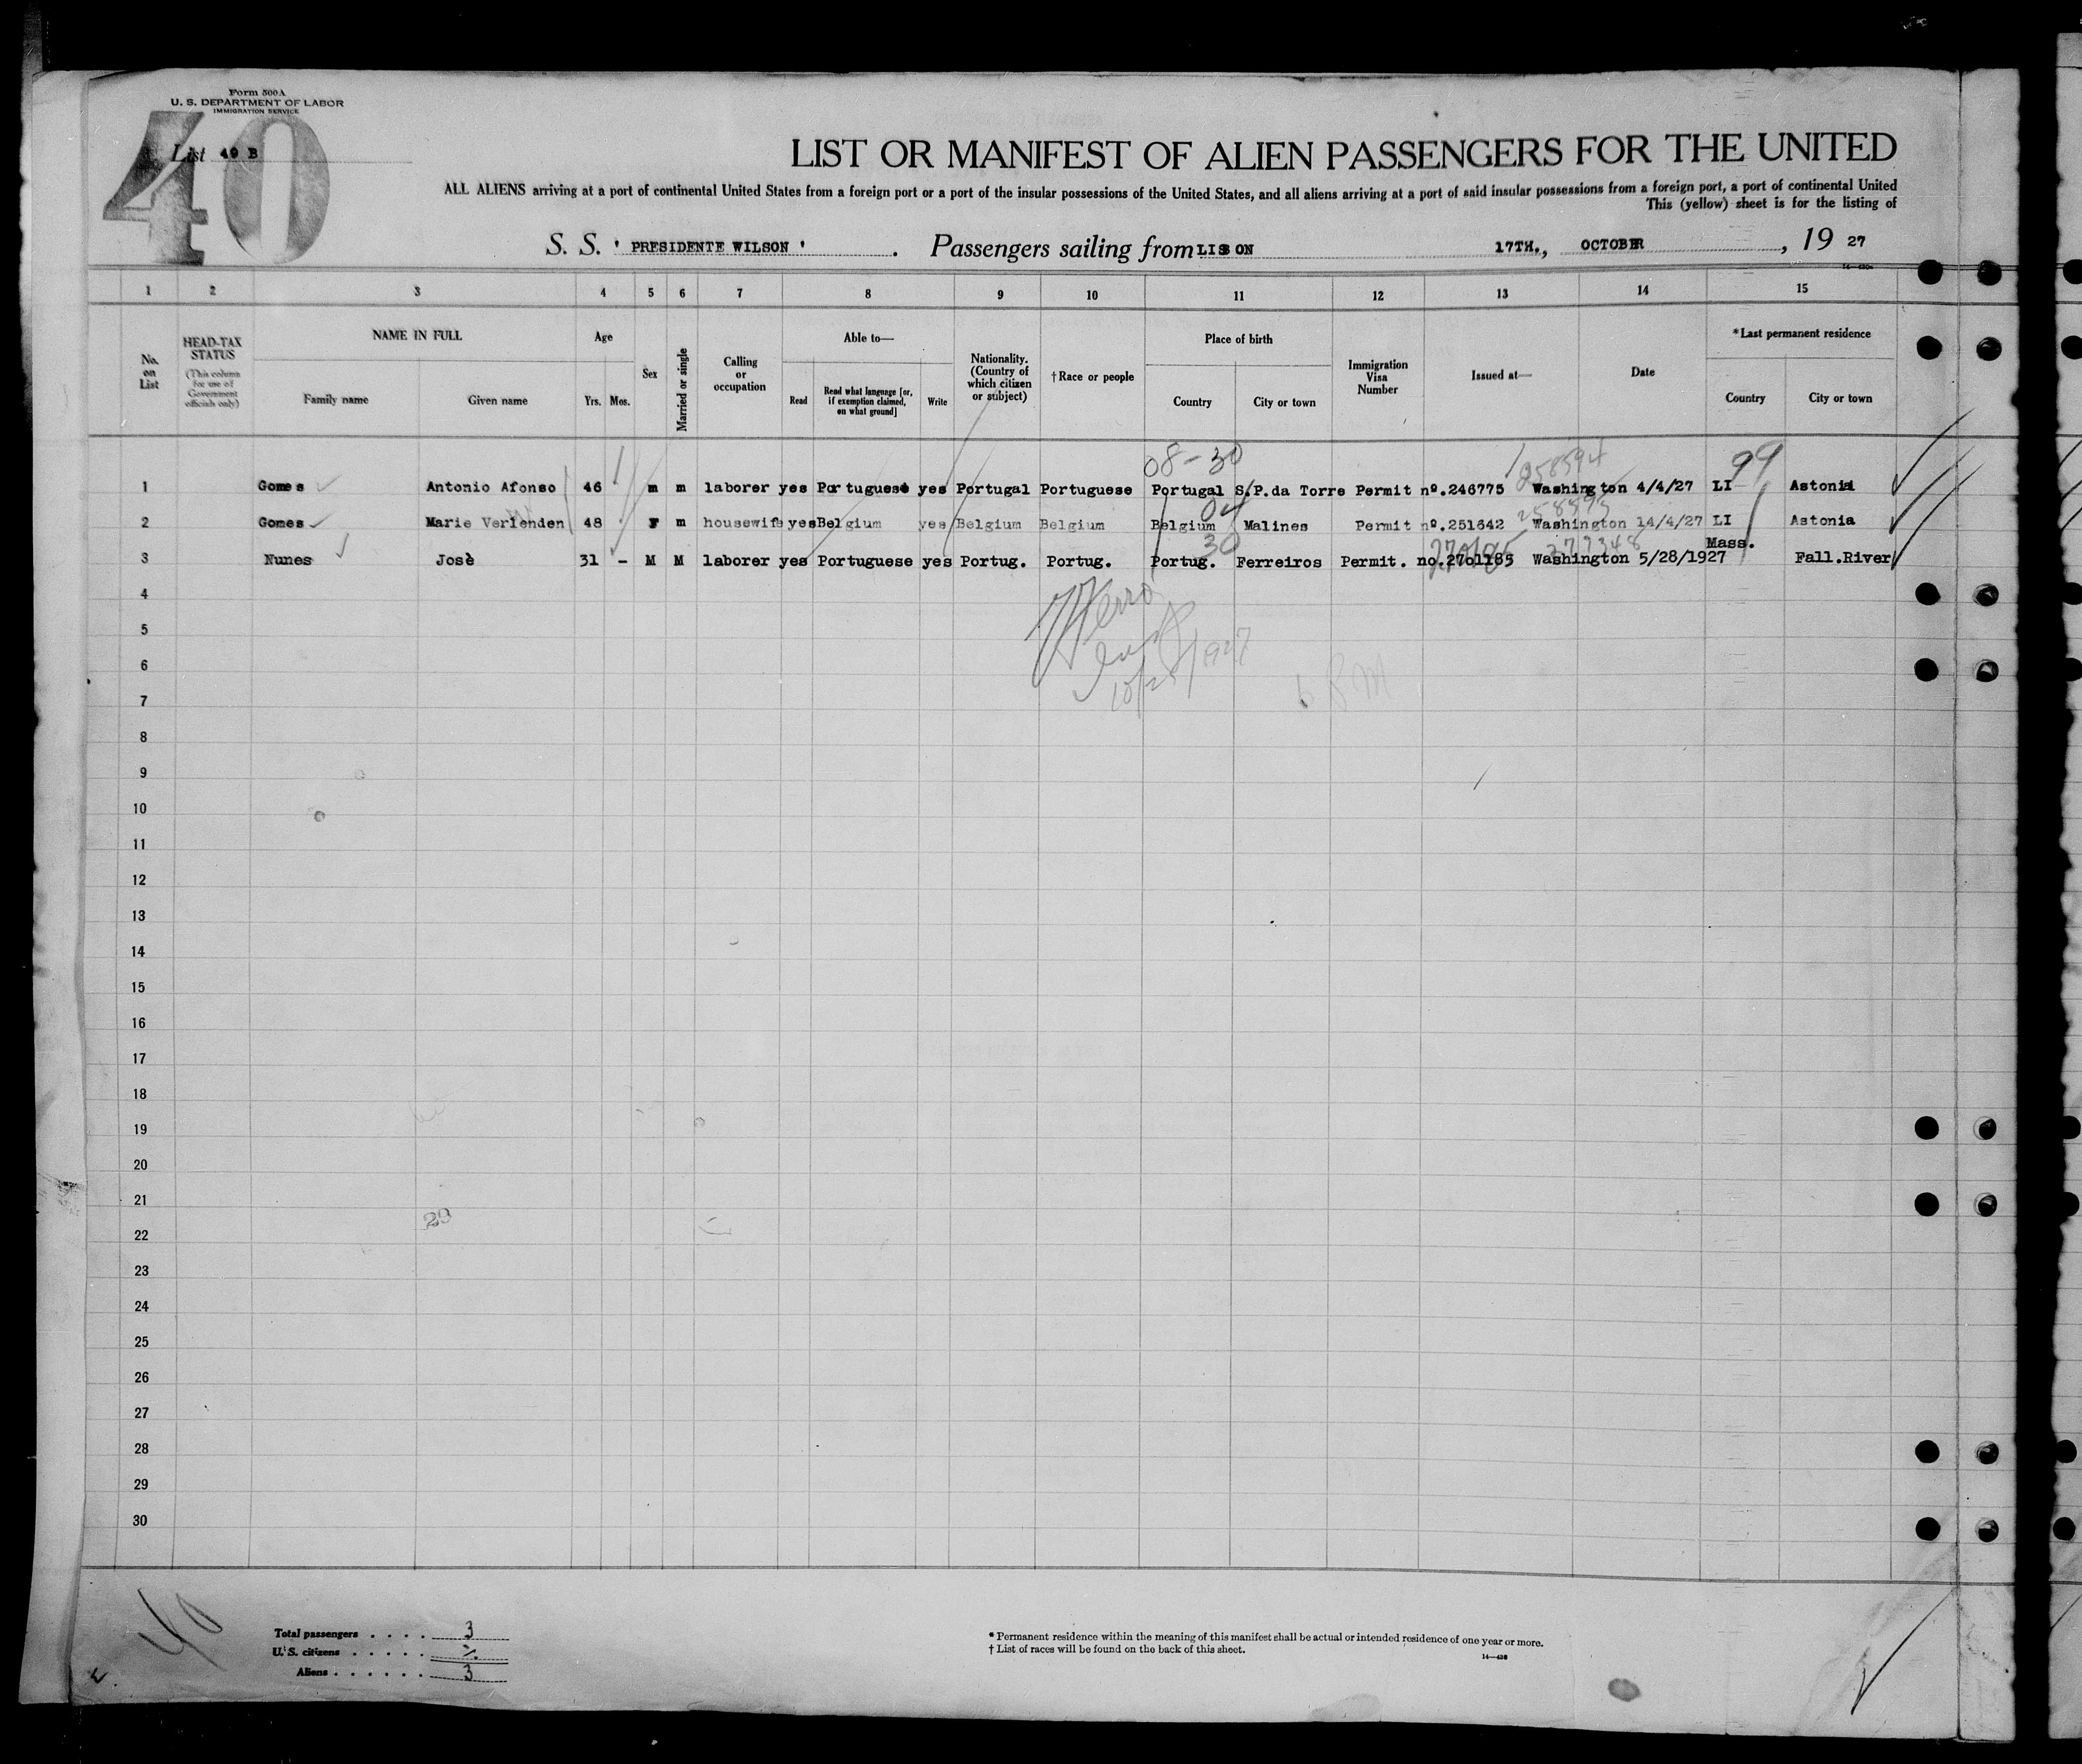 Form 500A
U. S. DEPARTMENT OF LABOR
IMMIGRATION SERVICE
40
List 40 B
LIST OR MANIFEST OF ALIEN PASSENGERS FOR THE UNITED
ALL ALIENS arriving at a port of continental United States from a foreign port or a port of the insular possessions of the United States, and all aliens arriving at a port of said insular possessions from a foreign port, a port of continental United
This (yellow) sheet is for the listing of
S. S. ' PRESIDENTE WILSON ' . Passengers sailing from LISBON 17TH., OCTOBER , 19 27
1 2 3 4 5 6 7 8 9 10 11 12 13 14 15
No. on List
HEAD-TAX STATUS
(This column for use of Government officials only)
NAME IN FULL
Family name Given name
Age
Yrs. Mos.
Sex
Married or single
Calling or occupation
Able to—
Read
Read what language [or, if exemption claimed, on what ground]
Write
Nationality. (Country of which citizen or subject)
†Race or people
Place of birth
Country City or town
Immigration Visa Number
Issued at—
Date
*Last permanent residence
Country City or town
08-30 258594 99
1 Gomes Antonio Afonso 46 m m laborer yes Portuguese yes Portugal Portuguese Portugal S.P.da Torre Permit nº.246775 Washington 4/4/27 LI Astonia
04 258595
2 Gomes Marie Verlenden 48 F m housewife yes Belgium yes Belgium Belgium Belgium Malines Permit nº.251642 Washington 14/4/27 LI Astonia
30 Mass.
3 Nunes Josè 31 - M M laborer yes Portuguese yes Portug. Portug. Portug. Ferreiros Permit. no.2701185 Washington 5/28/1927 Fall.River
4
5
6
7
8
9
10
11
12
13
14
15
16
17
18
19
20
21
29
22
23
24
25
26
27
28
29
30
40
Total passengers . . . . 3
U. S. citizens . . . . .
Aliens . . . . . . 3
* Permanent residence within the meaning of this manifest shall be actual or intended residence of one year or more.
† List of races will be found on the back of this sheet.